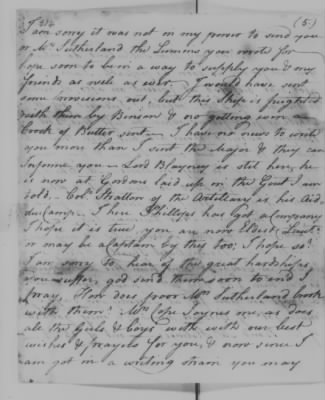 (5)
I am sorry it was not in my power to send you
or Mrs Sutherland the Linnins you wrote for
hope soon to be in a way to supply you & my
friends as well as ever. I would have sent
some provissions out, but this Ship is freighted
with them by Benson & no getting even a
Crock of Butter sent - I have no news to write
you more than I sent the Major & they can
Informe you - Lord Blayney is still here, he
is now at Gordons laid up in the Gout I am
told. Coll. Stratton of the Artilleary is his Aid
ducamp. I here Phillops has got a Company
I hope it is true, you are now Eldest Lieut.
or may be a Captain by this too; I hope so!
I am sorry to hear of the great hardships
you suffer, god send them soon to end I
pray. How does poor Mrs Sutherland brook
with them? Mrs Cope Joynes me, as does
all the Girls & boys with with our best
wishes & prayers for you, & now since I
am got in a writing strain you may